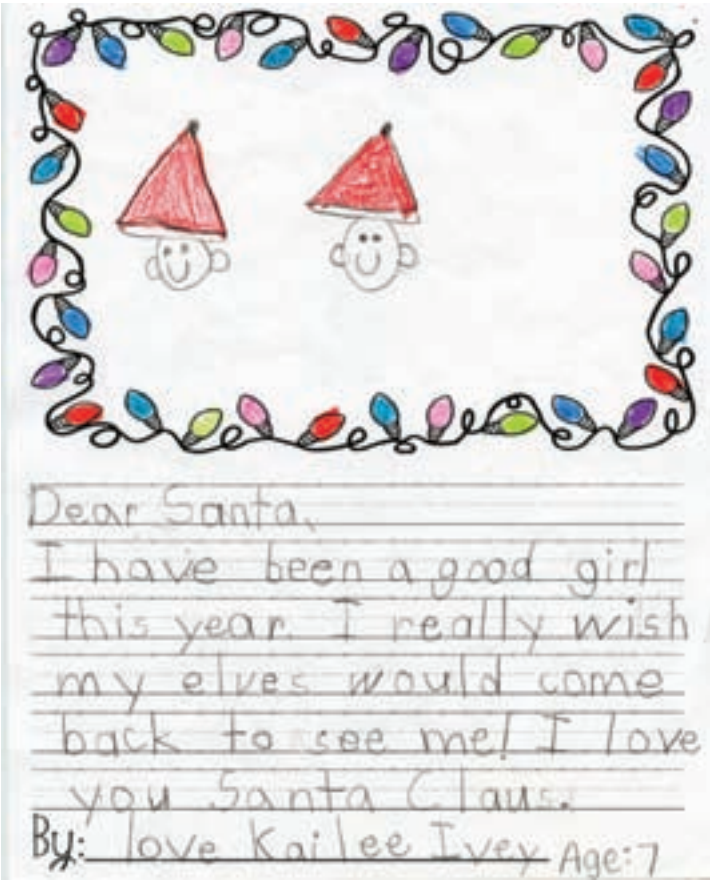 Dear Santa,
I have been a good girl
this year. I really wish
my elves would come
back to see me! I love
you Santa Claus.
By: love Kailee Ivey Age: 7